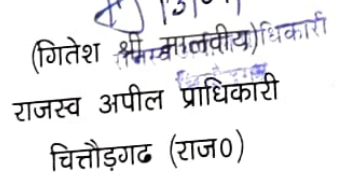 (गितेश श्री मालवीय)
राजस्व अपील प्राधिकारी
चित्तौड़गढ (राज0)